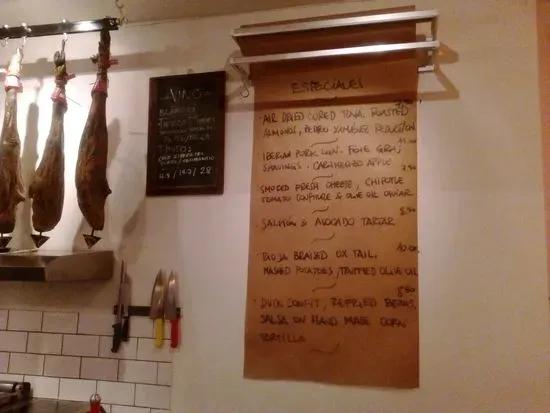 VINO
BLANCO
TINTO
ESPECIALES
AIR DRIED CURED TUNA, ROASTED
ALMONDS, PEDRO XIMENEZ REDUCTION
IBERIAN PORK LOIN, FOIE GRAS
SHAVINGS, CARAMELIZED APPLE
7.50
SMOKED FRESH CHEESE, CHIPOTLE
TOMATO CONFITURE & OLIVE OIL CAVIAR
8.50
SALMON & AVOCADO TARTAR
RIOJA BRAISED OX TAIL,
10.00
MASHED POTATOES, TRUFFLED OLIVE OIL
8.50
DUCK CONFIT, REFRIED BEANS,
SALSA ON HAND MADE CORN
TORTILLA